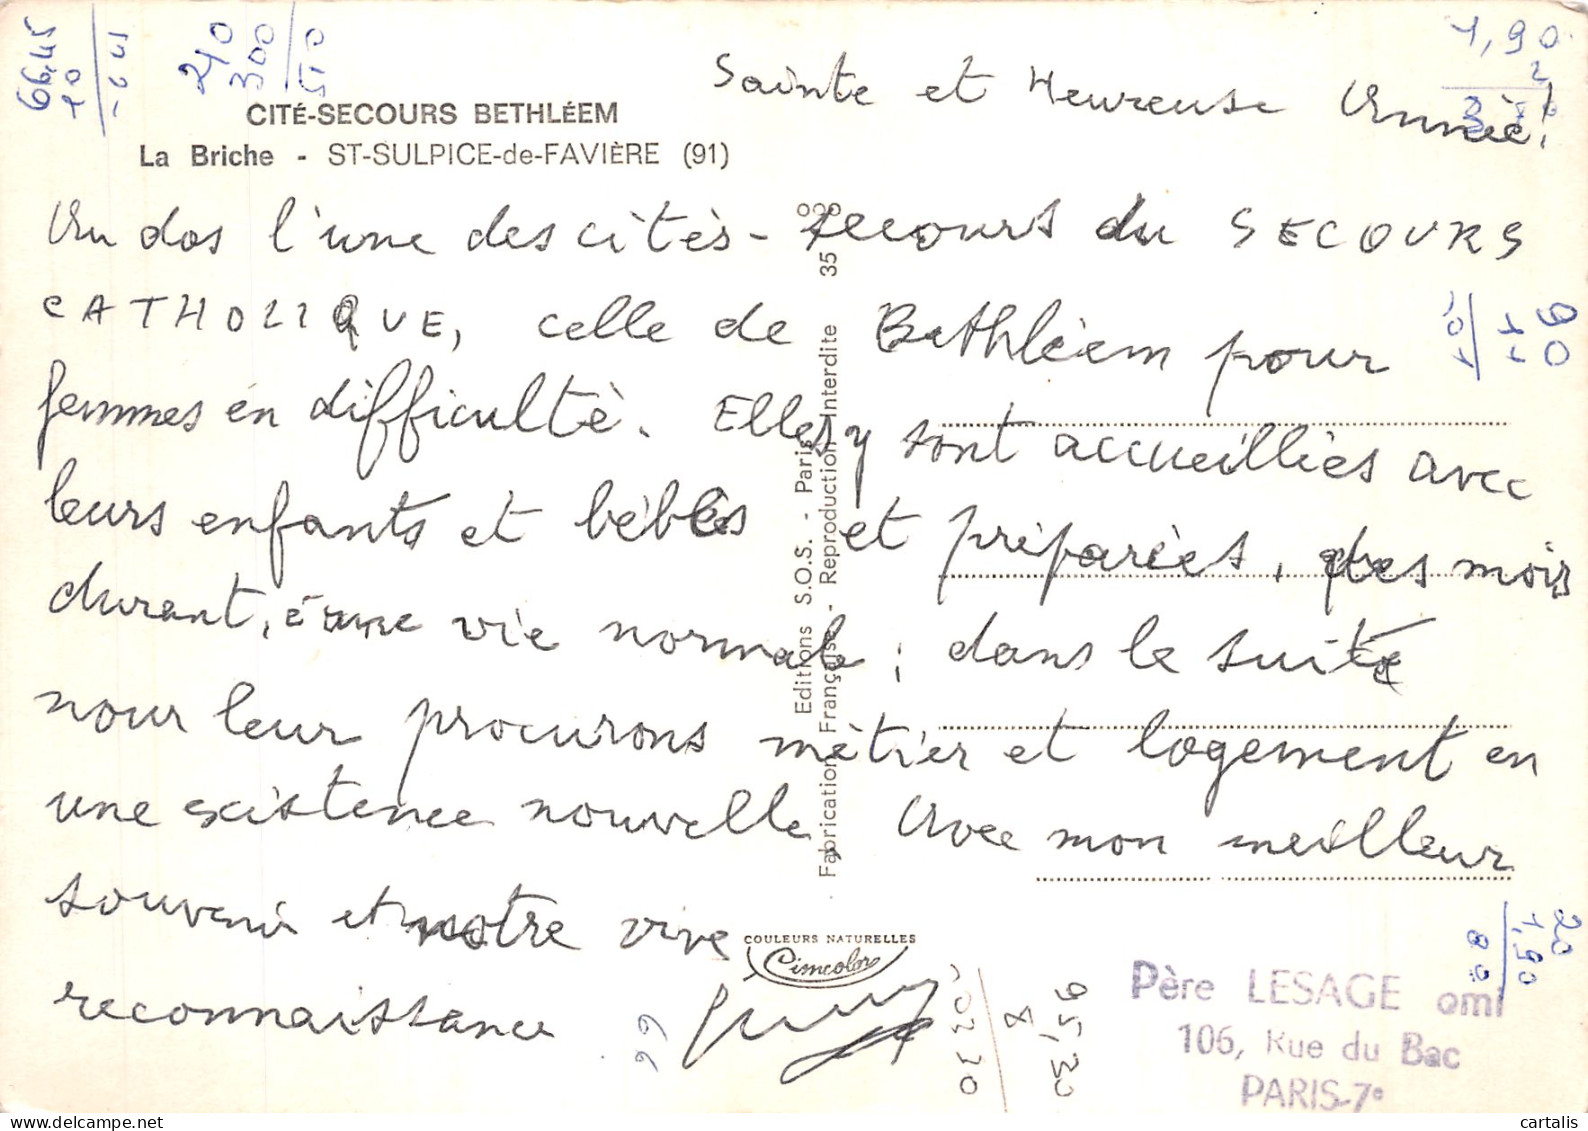 66,45
10
210
300
510
1,90
2
Sainte et Heureuse Année!
CITÉ-SECOURS BETHLÉEM
La Briche - ST-SULPICE-de-FAVIÈRE (91)
Au dos l'une des cités-secours du SECOURS
CATHOLIQUE, celle de Bethléem pour
femmes en difficulté. Elles y sont accueillies avec
leurs enfants et bébés et préparées, des mois
durant, à une vie normale; dans le suite
nour leur procurons métier et logement en
une existence nouvelle. Avec mon meilleur
souvenir et notre vive
reconnaissance
Editions S.O.S. - Paris
Fabrication Française - Reproduction Interdite 35
90
11
101
20
1,90
80
COULEURS NATURELLES
Cimcolor
99
95,30
8
Père LESAGE omi
106, Rue du Bac
PARIS-7e
cartalis